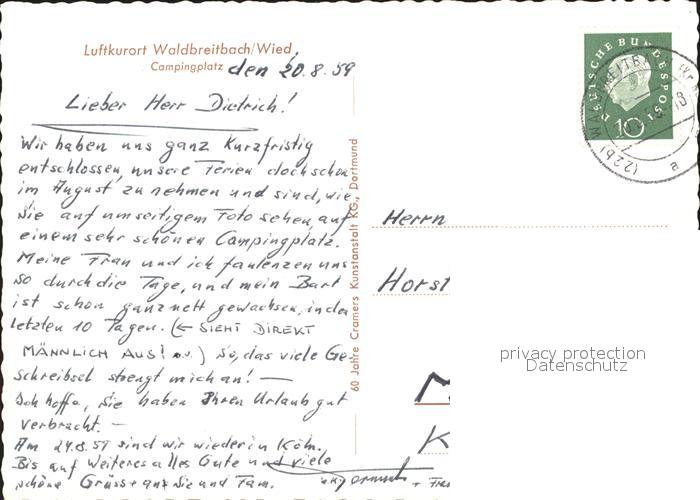 Luftkurort Waldbreitbach/Wied
Campingplatz den 20.8.59
Lieber Herr Dietrich!
Wir haben uns ganz Kurzfristig
entschlossen, unsere Ferien doch schon
im August zu nehmen und sind, wie
Sie auf umseitigem Foto sehen, auf
einem sehr schönen Campingplatz.
Meine Frau und ich faulenzen uns
so durch die Tage, und mein Bart
ist schon ganz nett gewachsen, in den
letzten 10 Tagen. (← SIEHT DIREKT
MÄNNLICH AUS!) So, das viele Ge-
schreibsel strengt mich an! —
Ich hoffe, Sie haben Ihren Urlaub gut
verbracht. —
Am 24.8.59 sind wir wieder in Köln.
Bis auf weiteres alles Gute und viele
schöne Grüsse an Sie und Fam.
+ Frau
60 Jahre Cramers Kunstanstalt KG., Dortmund
DEUTSCHE BUNDESPOST
10
(22b)
a
Herrn
Horst
M
K
privacy protection
Datenschutz